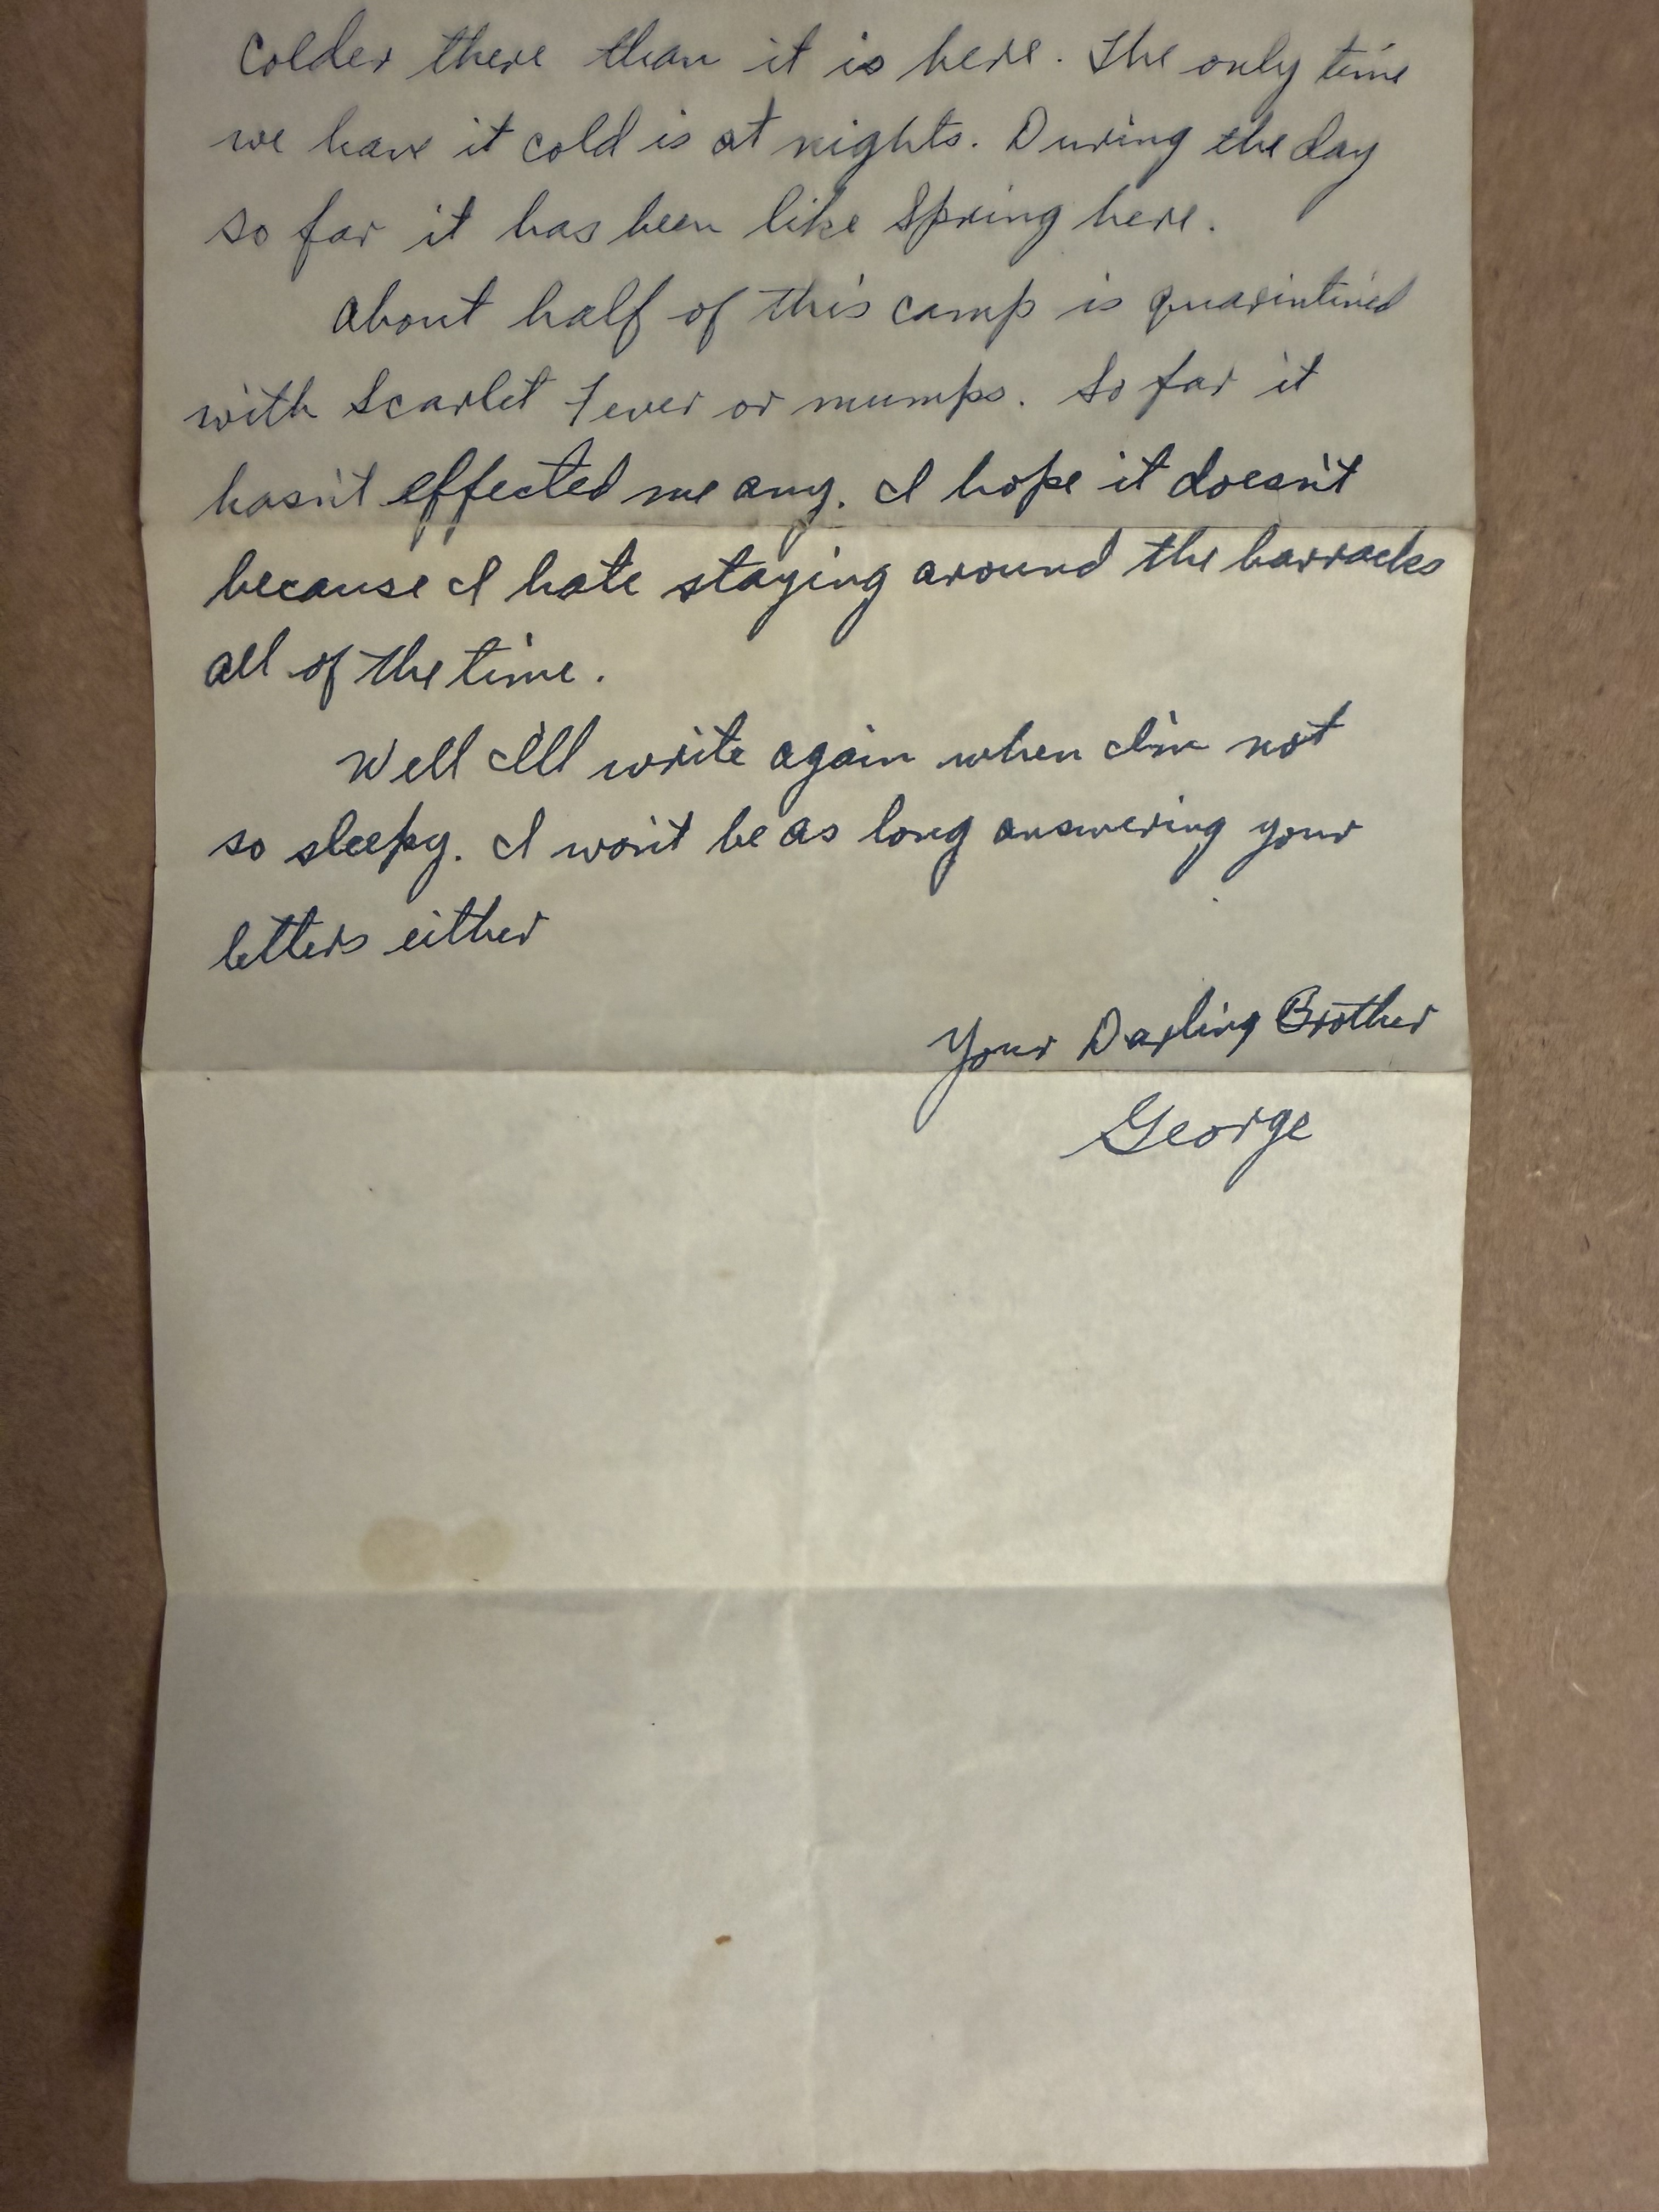 colder there than it is here. The only time
we have it cold is at nights. During the day
so far it has been like Spring here.
About half of this camp is quarintined
with Scarlet Fever or mumps. So far it
hasn't effected me any. I hope it doesn't
because I hate staying around the barracks
all of the time.
Well I'll write again when I'm not
so sleepy. I won't be as long answering your
letters either
Your Darling Brother
George